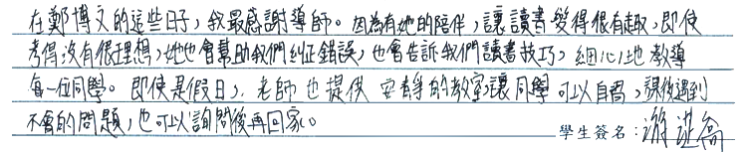 在鄭博文的這些日子，我最感謝導師。因為有她的陪伴，讓讀書變得很有趣，即使
考得沒有很理想，她也會幫助我們糾正錯誤，也會告訴我們讀書技巧，細心地教導
每一位同學。即使是假日，老師也提供安靜的教室讓同學可以自習，課後遇到
不會的問題，也可以詢問後再回家。
學生簽名：游